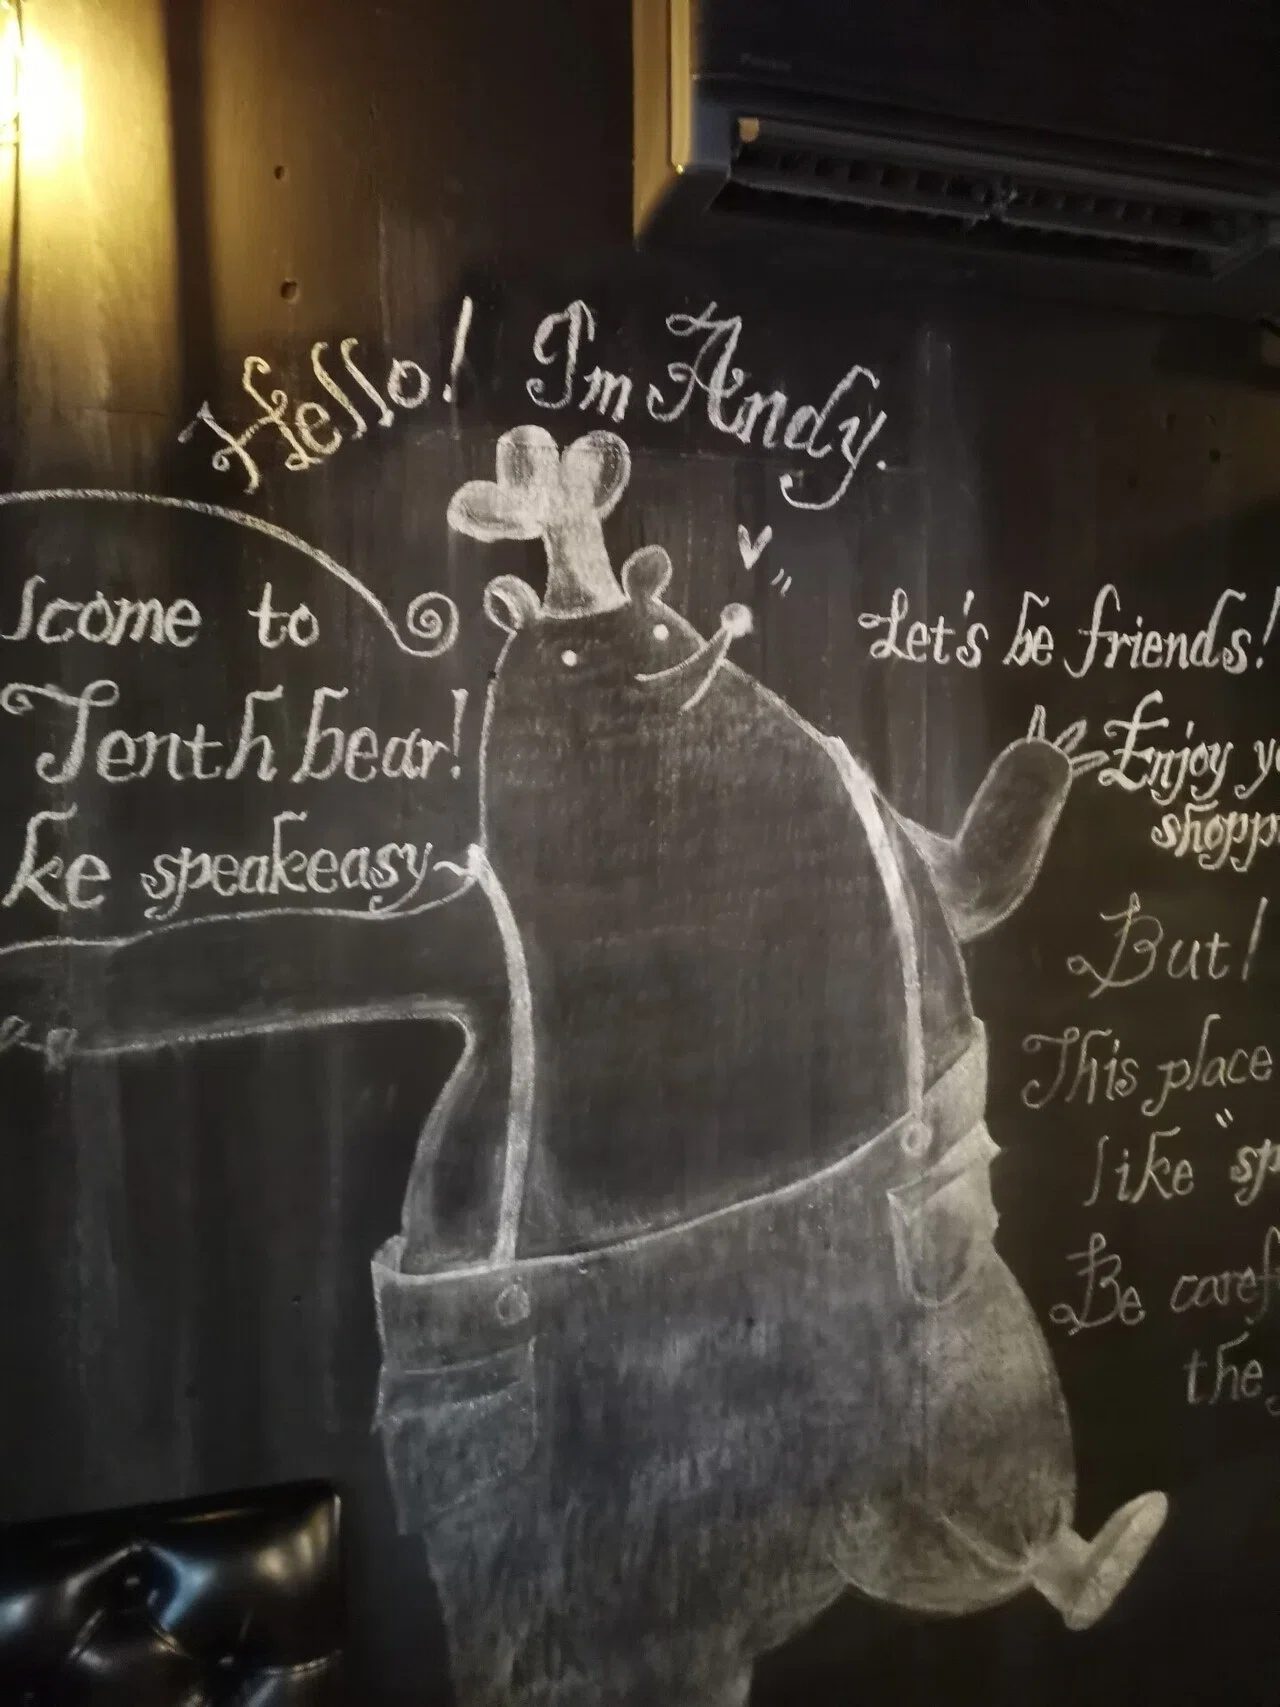 Hello! I'm Andy.
lcome to
Tenth bear!
ke speakeasy~
Let's be friends!
Enjoy yo
shopp
But!
This place
like "sp
Be caref
the